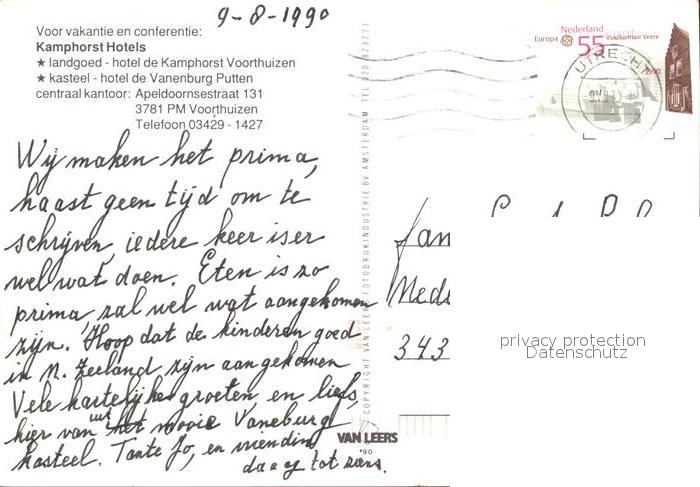 9-8-1990
Voor vakantie en conferentie:
Kamphorst Hotels
★ landgoed - hotel de Kamphorst Voorthuizen
★ kasteel - hotel de Vanenburg Putten
centraal kantoor: Apeldoornsestraat 131
3781 PM Voorthuizen
Telefoon 03429 - 1427
Wij maken het prima,
haast geen tijd om te
schrijven, iedere keer is er
wel wat doen. Eten is zo
prima, zal wel wat aangekomen
zijn. Hoop dat de kinderen goed
in N. Zeeland zijn aangekomen
Vele hartelijke groeten en liefs,
hier van uit het mooie Vaneburg
kasteel. Tante Jo, en vriendin
daaag tot ziens.
COPYRIGHT VAN LEER'S FOTODRUKINDUSTRIE BV AMSTERDAM TEL
VAN LEERS
'90
Nederland
Europa 55 cent Postkantoor Veere
1990
UTRECHT
Fam
Neds
343
privacy protection
Datenschutz